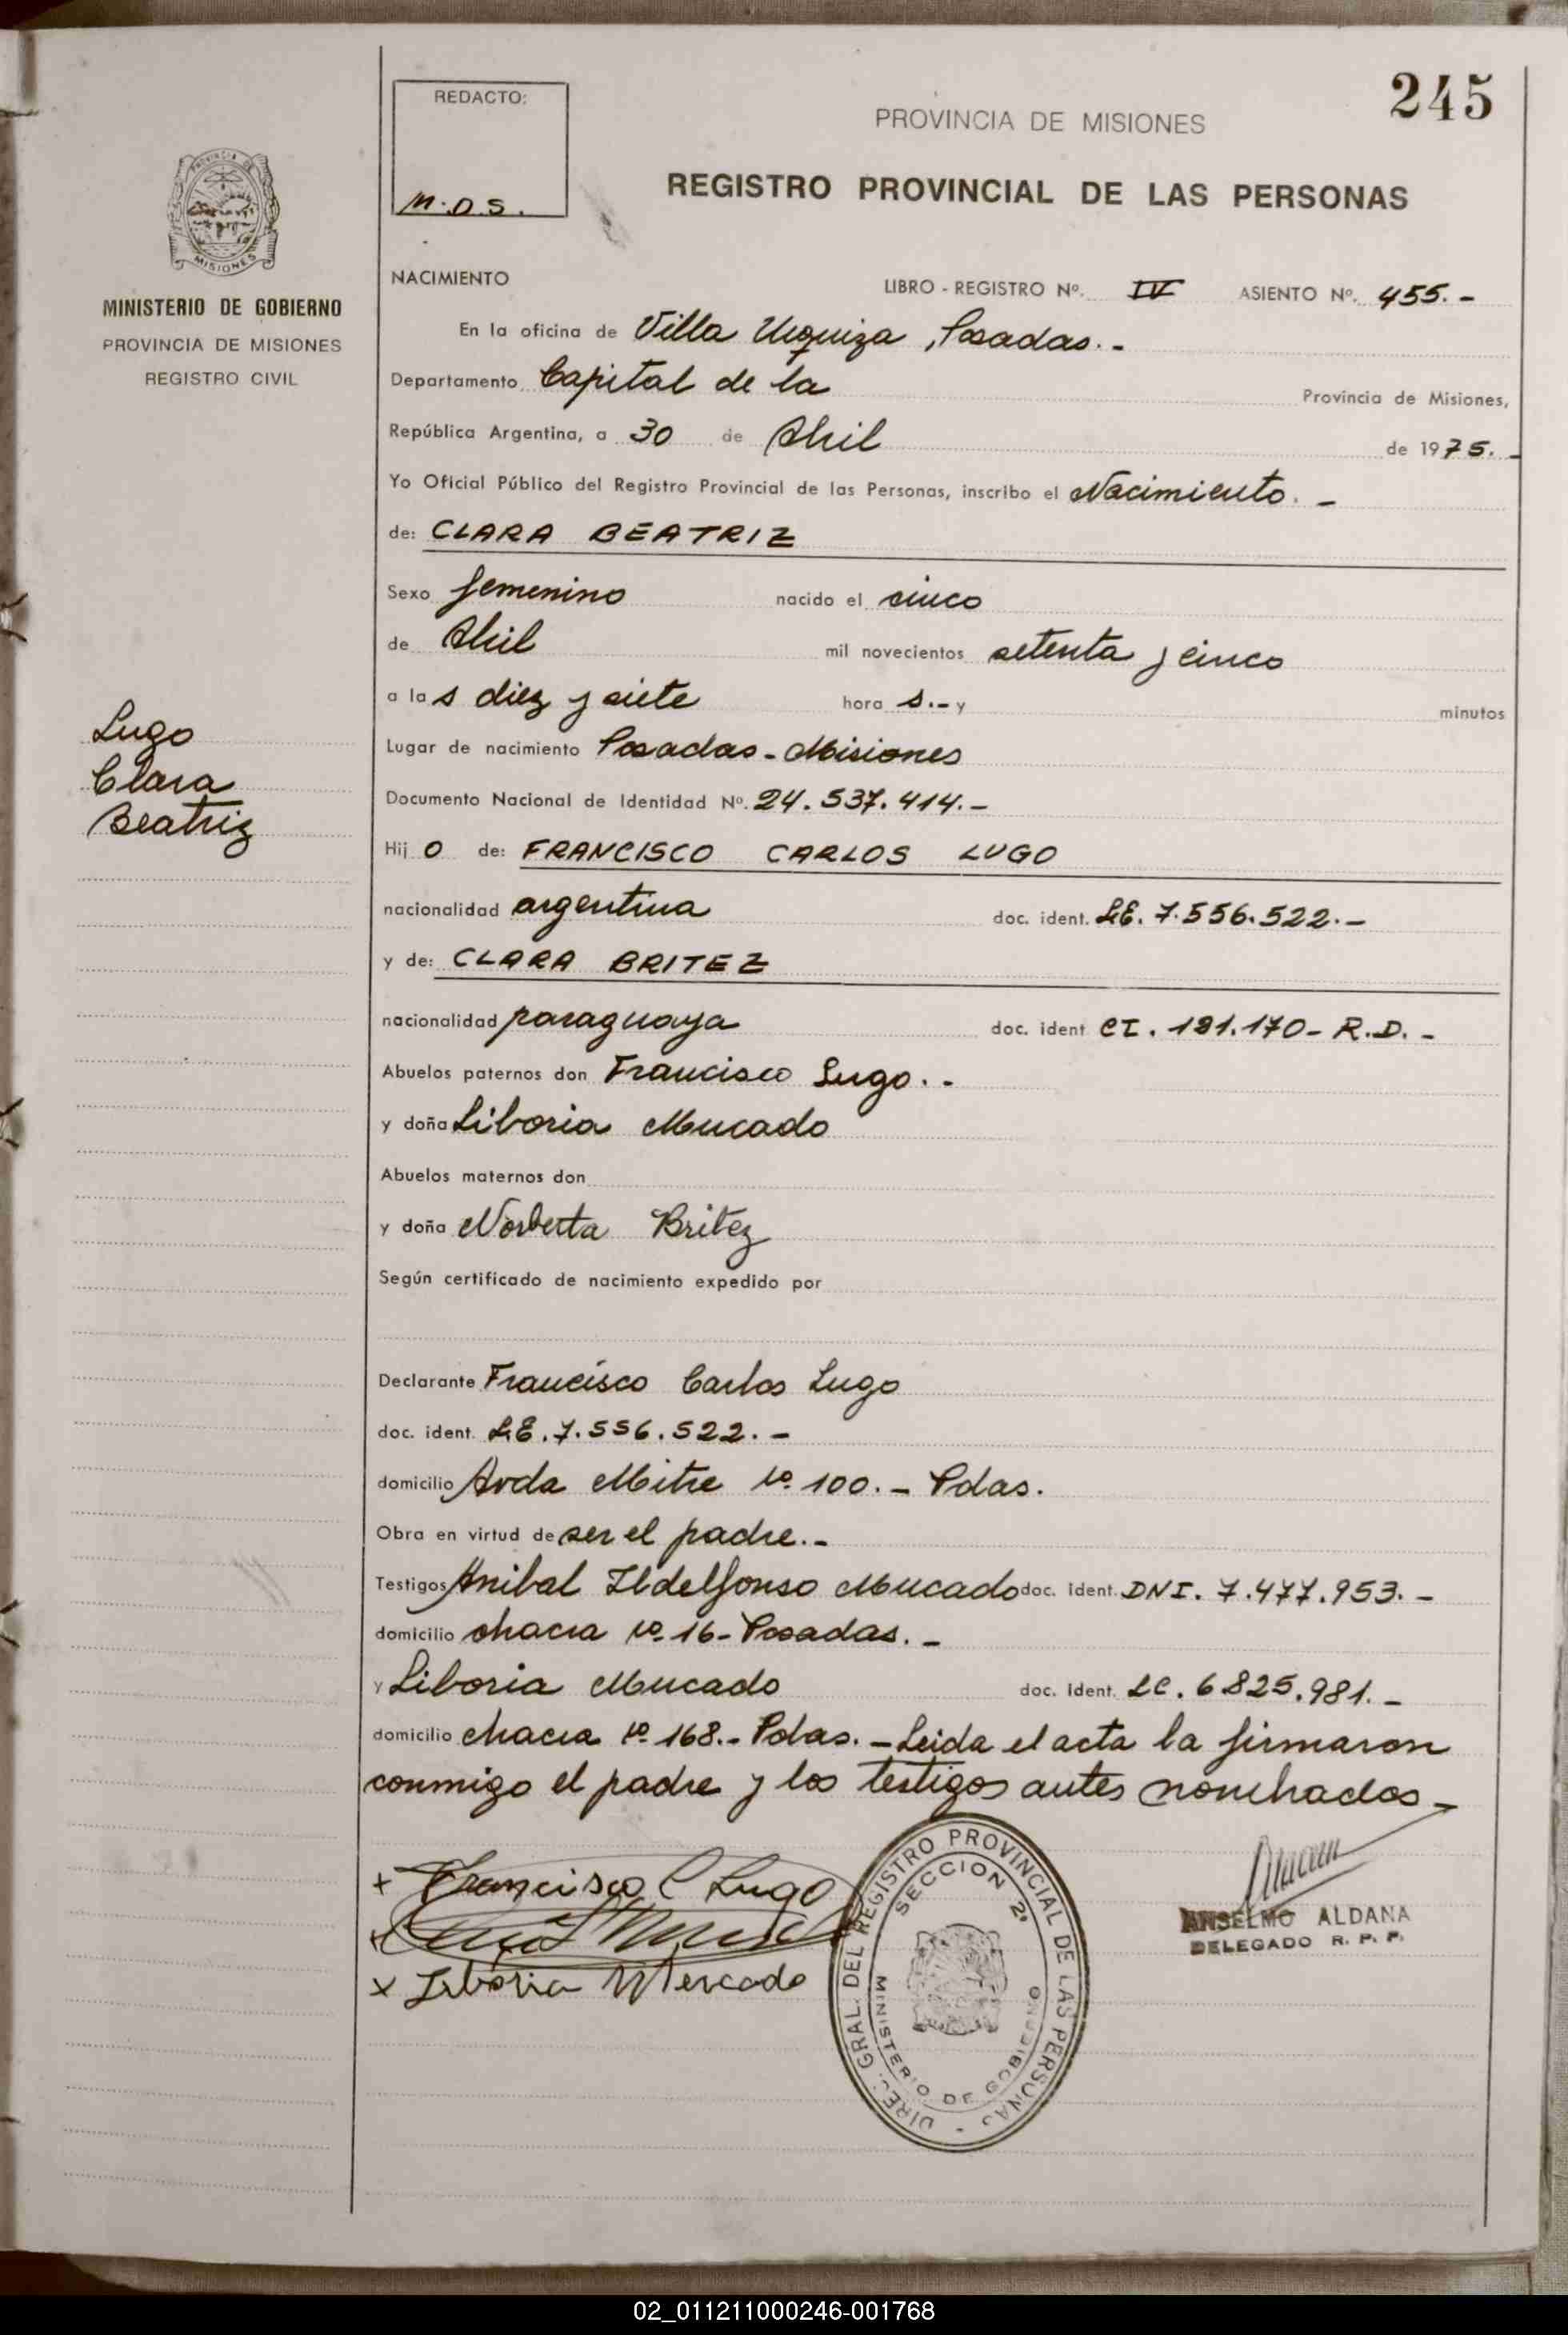 245
REDACTO:
M.O.S.
PROVINCIA DE MISIONES
REGISTRO PROVINCIAL DE LAS PERSONAS
PROVINCIA DE
MISIONES
MINISTERIO DE GOBIERNO
PROVINCIA DE MISIONES
REGISTRO CIVIL
NACIMIENTO LIBRO - REGISTRO Nº. IV ASIENTO Nº. 455.-
En la oficina de Villa Urquiza, Posadas.-
Departamento Capital de la Provincia de Misiones,
República Argentina, a 30 de Abril de 1975.-
Yo Oficial Público del Registro Provincial de las Personas, inscribo el Nacimiento.-
de: CLARA BEATRIZ
Sexo femenino nacido el cinco
de Abril mil novecientos setenta y cinco
a las diez y siete horas.- y minutos
Lugo
Clara
Beatriz
Lugar de nacimiento Posadas-Misiones
Documento Nacional de Identidad Nº. 24.537.414.-
Hijo de: FRANCISCO CARLOS LUGO
nacionalidad argentina doc. ident. LE. 7.556.522.-
y de: CLARA BRITEZ
nacionalidad paraguaya doc. ident CI. 191.170- R.D.-
Abuelos paternos don Francisco Lugo.-
y doña Liboria Mercado
Abuelos maternos don
y doña Norberta Britez
Según certificado de nacimiento expedido por
Declarante Francisco Carlos Lugo
doc. ident. LE. 7.556.522.-
domicilio Avda Mitre Nº 100.- Pdas.
Obra en virtud de ser el padre.-
Testigos Anibal Ildelfonso Mercado doc. ident. DNI. 7.477.953.-
domicilio chacra Nº 16- Posadas.-
y Liboria Mercado doc. ident. LC. 6825.981.-
domicilio chacra Nº 168.- Pdas.- Leida el acta la firmaron
conmigo el padre y los testigos antes nombrados-
+ Francisco C Lugo
x Liboria Mercado
DIREC. GRAL. DEL REGISTRO PROVINCIAL DE LAS PERSONAS -
SECCION 2ª
MINISTERIO DE GOBIERNO
ANSELMO ALDANA
DELEGADO R. P. P.
02_011211000246-001768